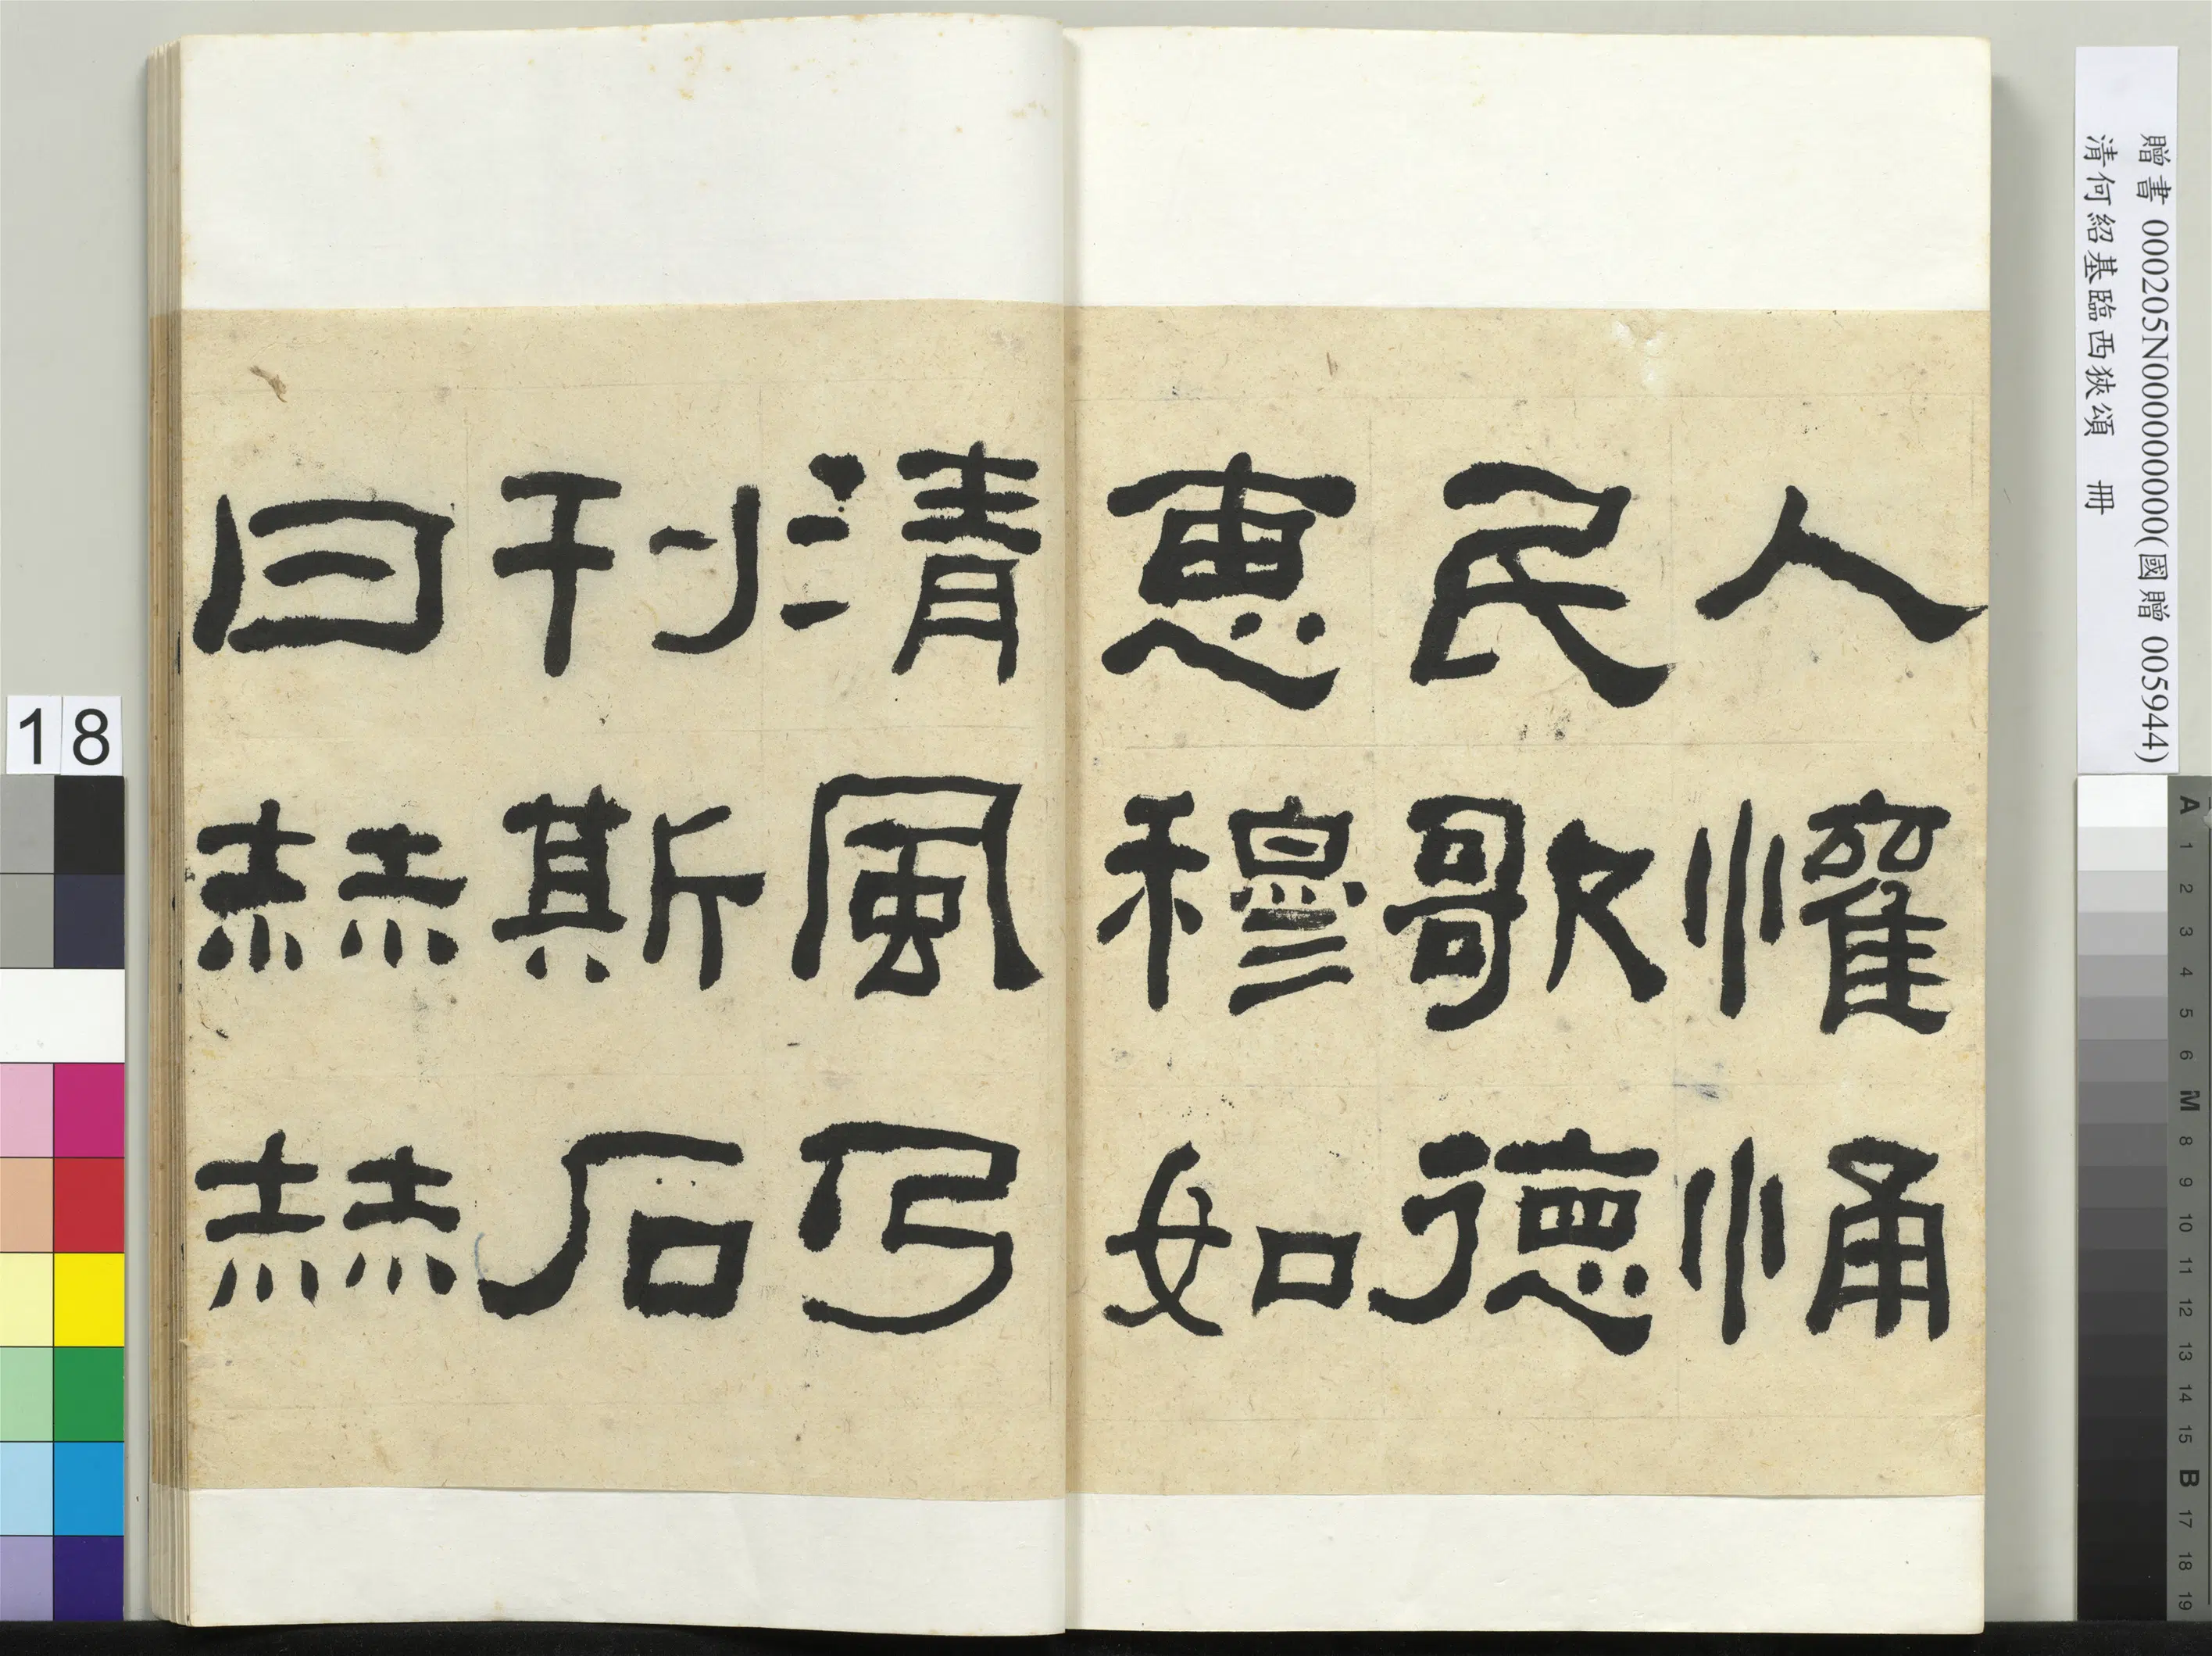 贈書 000205N000000000(國贈 005944)
清何紹基臨西狹頌 冊
人懽悀
民歌德
惠穆如
清風乃
刊斯石
曰赫赫
18
A 1 2 3 4 5 6 M 8 9 10 11 12 13 14 15 B 17 18 19